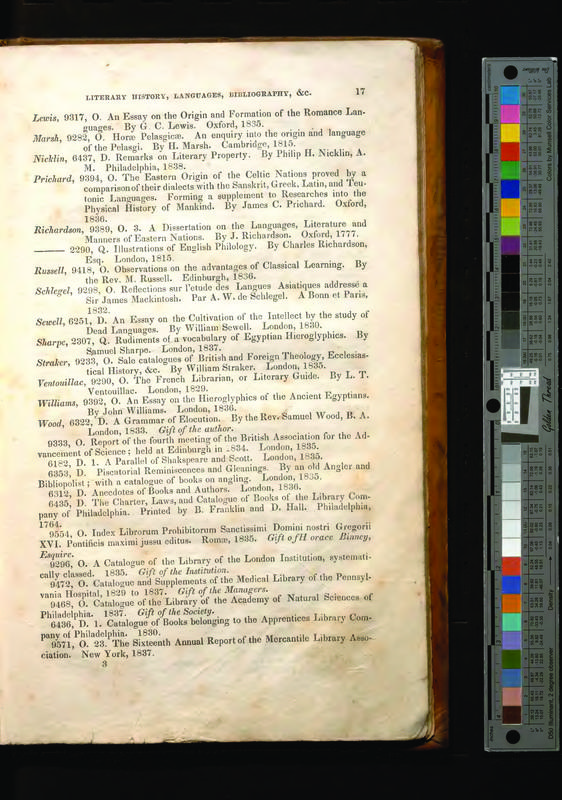 LITERARY HISTORY, LANGUAGES, BIBLIOGRAPHY, &c. 17
Lewis, 9317, O. An Essay on the Origin and Formation of the Romance Lan-
guages. By G. C. Lewis. Oxford, 1835.
Marsh, 9282, O. Horæ Pelasgicæ. An enquiry into the origin and language
of the Pelasgi. By H. Marsh. Cambridge, 1815.
Nicklin, 6437, D. Remarks on Literary Property. By Philip H. Nicklin, A.
M. Philadelphia, 1838.
Prichard, 9394, O. The Eastern Origin of the Celtic Nations proved by a
comparison of their dialects with the Sanskrit, Greek, Latin, and Teu-
tonic Languages. Forming a supplement to Researches into the
Physical History of Mankind. By James C. Prichard. Oxford,
1836.
Richardson, 9389, O. 3. A Dissertation on the Languages, Literature and
Manners of Eastern Nations. By J. Richardson. Oxford, 1777.
——— 2290, Q. Illustrations of English Philology. By Charles Richardson,
Esq. London, 1815.
Russell, 9418, O. Observations on the advantages of Classical Learning. By
the Rev. M. Russell. Edinburgh, 1836.
Schlegel, 9298, O. Reflections sur l'etude des Langues Asiatiques addressé a
Sir James Mackintosh. Par A. W. de Schlegel. A Bonn et Paris,
1832.
Sewell, 6251, D. An Essay on the Cultivation of the Intellect by the study of
Dead Languages. By William Sewell. London, 1830.
Sharpe, 2307, Q. Rudiments of a vocabulary of Egyptian Hieroglyphics. By
Samuel Sharpe. London, 1837.
Straker, 9233, O. Sale catalogues of British and Foreign Theology, Ecclesias-
tical History, &c. By William Straker. London, 1835.
Ventouillac, 9290, O. The French Librarian, or Literary Guide. By L. T.
Ventouillac. London, 1829.
Williams, 9392, O. An Essay on the Hieroglyphics of the Ancient Egyptians.
By John Williams. London, 1836.
Wood, 6322, D. A Grammar of Elocution. By the Rev. Samuel Wood, B. A.
London, 1833. Gift of the author.
9333, O. Report of the fourth meeting of the British Association for the Ad-
vancement of Science; held at Edinburgh in 1834. London, 1835.
6182, D. 1. A Parallel of Shakspeare and Scott. London, 1835.
6353, D. Piscatorial Reminiscences and Gleanings. By an old Angler and
Bibliopolist; with a catalogue of books on angling. London, 1835.
6312, D. Anecdotes of Books and Authors. London, 1836.
6435, D. The Charter, Laws, and Catalogue of Books of the Library Com-
pany of Philadelphia. Printed by B. Franklin and D. Hall. Philadelphia,
1764.
9554, O. Index Librorum Prohibitorum Sanctissimi Domini nostri Gregorii
XVI. Pontificis maximi jussu editus. Romæ, 1835. Gift of H orace Binney,
Esquire.
9296, O. A Catalogue of the Library of the London Institution, systemati-
cally classed. 1835. Gift of the Institution.
9472, O. Catalogue and Supplements of the Medical Library of the Pennsyl-
vania Hospital, 1829 to 1837. Gift of the Managers.
9468, O. Catalogue of the Library of the Academy of Natural Sciences of
Philadelphia. 1837. Gift of the Society.
6436, D. 1. Catalogue of Books belonging to the Apprentices Library Com-
pany of Philadelphia. 1830.
9571, O. 23. The Sixteenth Annual Report of the Mercantile Library Asso-
ciation. New York, 1837.
3
Colors by Munsell Color Services Lab
Golden Thread
Density
D50 Illuminant, 2 degree observer